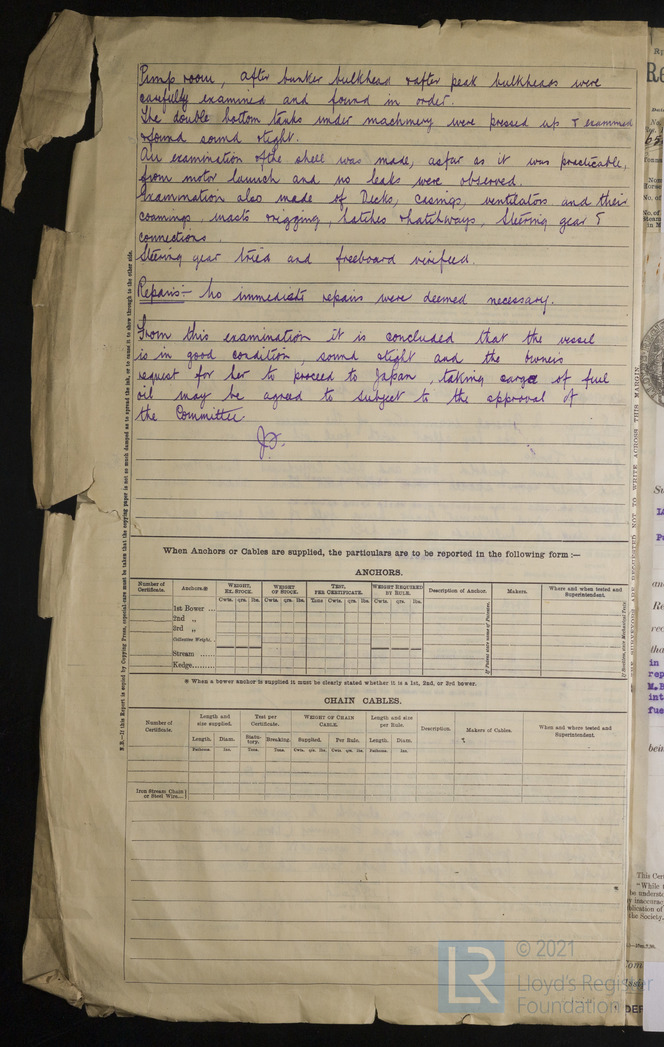 Pump room, after bunker bulkhead & after peak bulkheads were
carefully examined and found in order.
The double bottom tanks under machinery were pressed up & examined
& found sound & tight.
An examination of the shell was made, as far as it was practicable,
from motor launch and no leaks were observed.
Examination also made of Decks, casings, ventilators and their
coamings, masts & rigging, hatches & hatchways, steering gear &
connections.
Steering gear tried and freeboard verified.
Repairs:- No immediate repairs were deemed necessary.
From this examination it is concluded that the vessel
is in good condition, sound & tight and the owners
request for her to proceed to Japan, taking cargo of fuel
oil may be agreed to subject to the approval of
the Committee.
When Anchors or Cables are supplied, the particulars are to be reported in the following form :—
ANCHORS.
Number of Certificate. Anchors.* WEIGHT, EX. STOCK. WEIGHT OF STOCK. TEST, PER CERTIFICATE. WEIGHT REQUIRED BY RULE. Description of Anchor. Makers. Where and when tested and Superintendent.
Cwts. qrs. lbs. Cwts. qrs. lbs. Tons Cwts. qrs. lbs. Cwts. qrs. lbs.
1st Bower ...
2nd „
3rd „
Collective Weight.
Stream ......
Kedge.......
* When a bower anchor is supplied it must be clearly stated whether it is a 1st, 2nd, or 3rd bower.
CHAIN CABLES.
Number of Certificate. Length and size supplied. Test per Certificate. WEIGHT OF CHAIN CABLE. Length and size per Rule. Description. Makers of Cables. Where and when tested and Superintendent.
Length. Diam. Statutory. Breaking. Supplied. Per Rule. Length. Diam.
Fathoms. Ins. Tons. Tons. Cwts. qrs. lbs. Cwts. qrs. lbs. Fathoms. Ins.
Iron Stream Chain
or Steel Wire...
N.B.—If this Report is copied by Copying Press, especial care must be taken that the copying paper is not so much damped as to spread the ink, or to cause it to show through to the other side.
LR
© 2021
Lloyd's Register
Foundation